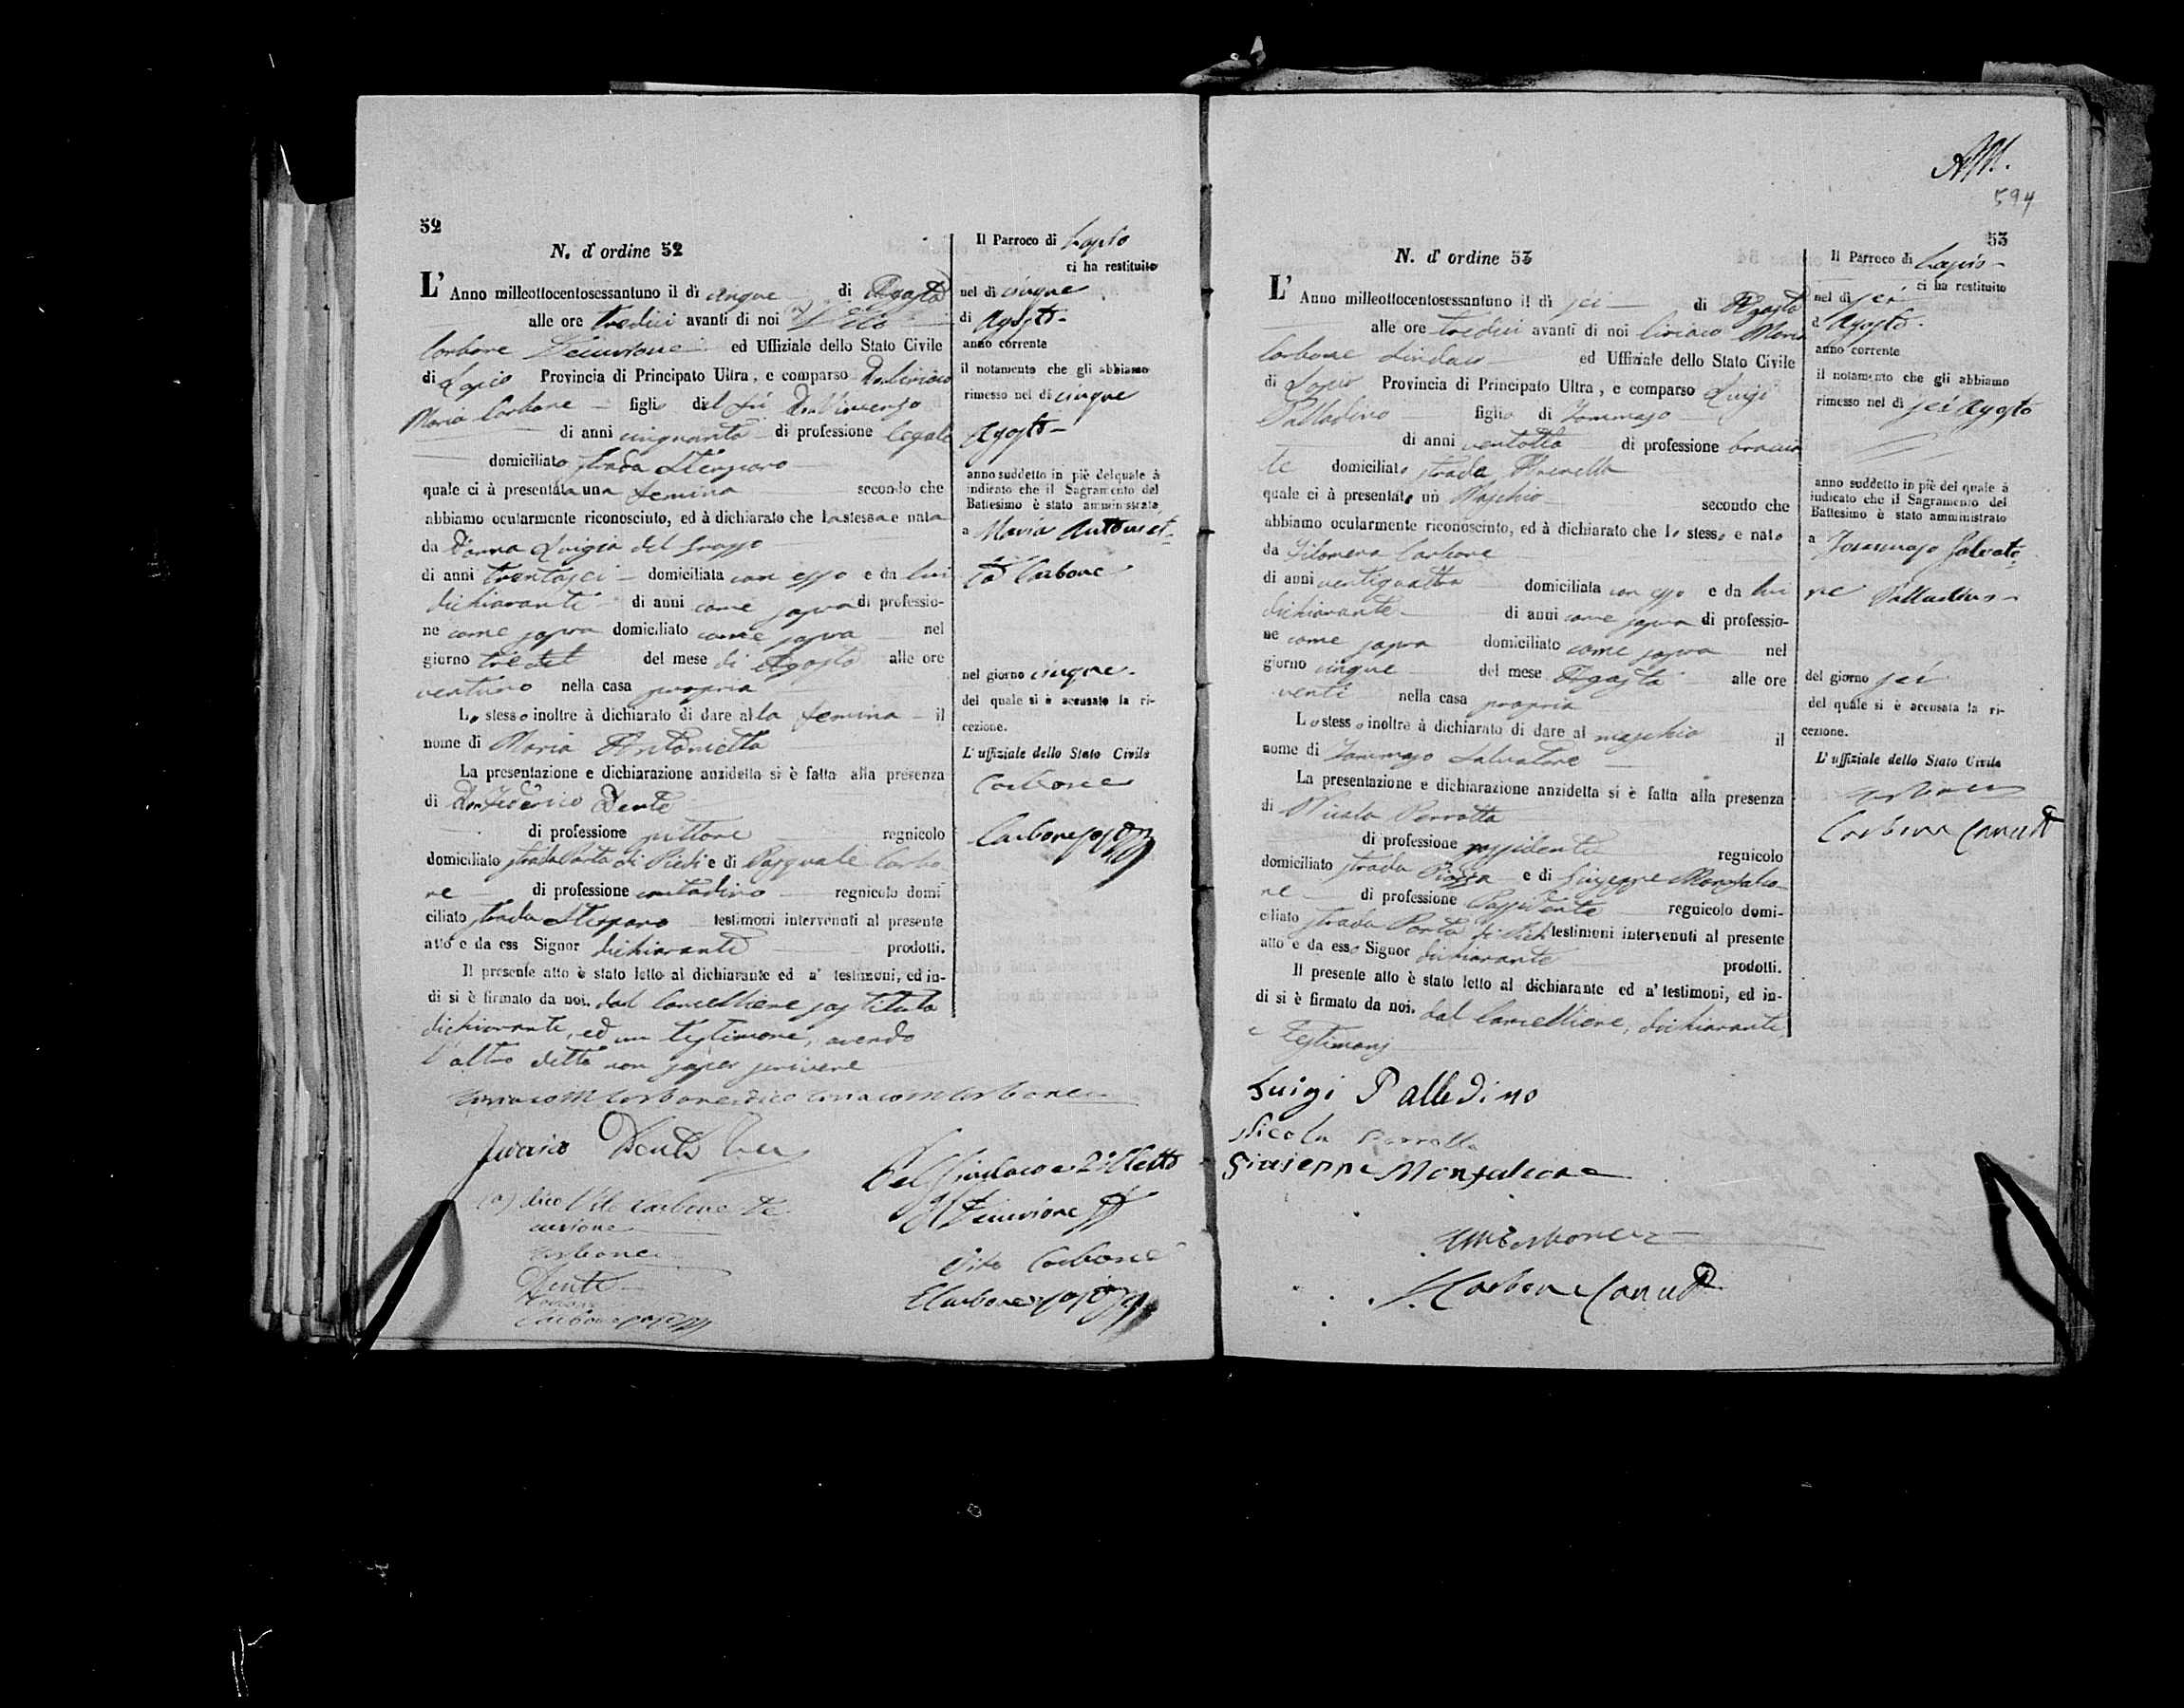 52
N. d' ordine 52
L' Anno milleottocentosessantuno il dì cinque di Agosto
alle ore tredici avanti di noi Vito
Carbone Decurione ed Uffiziale dello Stato Civile
di Lapio Provincia di Principato Ultra, e comparso Don Ciriaco
Maria Carbone figlio del fù Don Vincenzo
di anni cinquanta di professione legale
domiciliato strada
quale ci à presentata una femina secondo che
abbiamo ocularmente riconosciuto, ed à dichiarato che la stessa e nata
da Donna Luigia del Grosso
di anni trentasei domiciliata con esso e da lui
dichiarante di anni come sopra di professio-
ne come sopra domiciliato come sopra nel
giorno tre del del mese di Agosto alle ore
ventuno nella casa propria
Lo stesso inoltre à dichiarato di dare alla femina il
nome di Maria Antonietta
La presentazione e dichiarazione anzidetta si è fatta alla presenza
di Don Federico Dente
di professione pittore regnicolo
domiciliato strada Porta di Piedi e di Pasquale Carbo
ne di professione contadino regnicolo domi
ciliato strada testimoni intervenuti al presente
atto e da ess Signor dichiarante prodotti.
Il presente atto è stato letto al dichiarante ed a' testimoni, ed in-
di si è firmato da noi. dal Cancelliere sostituto
dichiarante, ed un testimone, avendo
l'altro detto non saper scrivere
Ciriaco M Carbone dico Ciriaco M Carbone
Federico Dente
Pel Sindaco e 2º Eletto
Il Decurione
(a) dico Vito Carbone De
curione
Carbone
Vito Carbone
Dente
Carbone
Carbone
Il Parroco di Lapio
ci ha restituito
nel dì cinque
di Agosto
anno corrente
il notamento che gli abbiamo
rimesso nel dì cinque
Agosto
anno suddetto in piè del quale à
indicato che il Sagramento del
Battesimo è stato amministrato
a Maria Antoniet-
ta Carbone
nel giorno cinque.
del quale si è accusato la ri-
cezione.
L' uffiziale dello Stato Civile
Carbone
Carbone
594
53
N. d' ordine 53
L' Anno milleottocentosessantuno il dì sei di Agosto
alle ore tredici avanti di noi Ciriaco Maria
Carbone Sindaco ed Uffiziale dello Stato Civile
di Lapio Provincia di Principato Ultra, e comparso Luigi
Palladino figlio di Tommaso
di anni ventotto di professione braccia
te domiciliato strada
quale ci à presentato un Maschio secondo che
abbiamo ocularmente riconosciuto, ed à dichiarato che lo stesso e nato
da Filomena Carbone
di anni ventiquattro domiciliata con esso e da lui
dichiarante di anni come sopra di professio-
ne come sopra domiciliato come sopra nel
giorno cinque del mese Agosto alle ore
venti nella casa propria
Lo stesso inoltre à dichiarato di dare al maschio il
nome di Tommaso Salvatore
La presentazione e dichiarazione anzidetta si è fatta alla presenza
di Nicola Perrotta
di professione possidente regnicolo
domiciliato strada Piazza e di Giuseppe Monfalco-
ne di professione Possidente regnicolo domi-
ciliato strada Porta di Piedi testimoni intervenuti al presente
atto e da esso Signor dichiarante prodotti.
Il presente atto è stato letto al dichiarante ed a' testimoni, ed in-
di si è firmato da noi. dal Cancelliere, dichiarante,
e Testimonj
Luigi Palledino
Nicola Perrotta
Giuseppe Monfalcone
Carbone
Carbone Canc
Il Parroco di Lapio
ci ha restituito
nel dì sei
d Agosto
anno corrente
il notamento che gli abbiamo
rimesso nel dì sei Agosto
anno suddetto in piè del quale à
indicato che il Sagramento del
Battesimo è stato amministrato
a Tommaso Salvato-
re Palladino
del giorno sei
del quale si è accusata la ri-
cezione.
L' uffiziale dello Stato Civile
Carbone
Carbone Canc